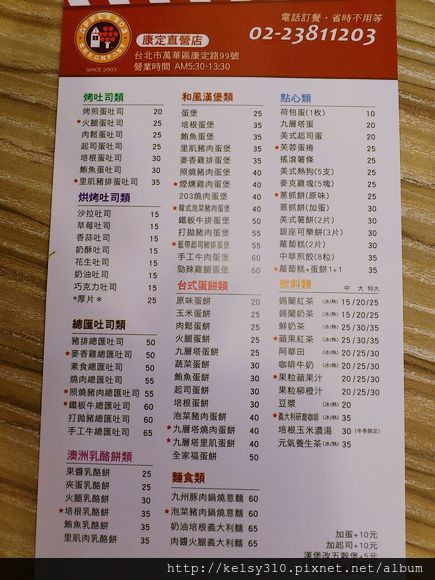 APPLE203
BREAKFAST
SINCE 2003
康定直營店
台北市萬華區康定路99號
營業時間 AM5:30-13:30
電話訂餐，省時不用等
02-23811203
烤吐司類
烤煎蛋吐司 20
★火腿蛋吐司 25
肉鬆蛋吐司 25
起司蛋吐司 25
培根蛋吐司 30
鮪魚蛋吐司 30
★里肌豬排蛋吐司 35
烘烤吐司類
沙拉吐司 15
草莓吐司 15
香蒜吐司 15
奶酥吐司 15
花生吐司 15
奶油吐司 15
巧克力吐司 15
*厚片* 25
總匯吐司類
豬排總匯吐司 50
★麥香雞總匯吐司 50
素食總匯吐司 50
燒肉總匯吐司 55
★照燒豬肉總匯吐司 55
★鐵板牛總匯吐司 60
打拋豬總匯吐司 60
手工牛總匯吐司 65
澳洲乳酪餅類
果醬乳酪餅 25
夾蛋乳酪餅 25
火腿乳酪餅 30
★培根乳酪餅 35
鮪魚乳酪餅 35
里肌肉乳酪餅 35
和風漢堡類
蛋堡 25
培根蛋堡 35
鮪魚蛋堡 35
里肌豬排蛋堡 35
麥香雞排蛋堡 35
照燒豬肉蛋堡 40
★煙燻雞肉蛋堡 40
203燒肉蛋堡 40
★韓式泡菜豬肉蛋堡 40
鐵板牛排蛋堡 50
打拋豬肉蛋堡 50
★藍帶起司豬排蛋堡 50
手工牛肉蛋堡 60
勁辣雞腿蛋堡 60
台式蛋餅類
原味蛋餅 20
玉米蛋餅 25
肉鬆蛋餅 25
火腿蛋餅 25
九層塔蛋餅 25
蔬菜蛋餅 30
鮪魚蛋餅 30
起司蛋餅 30
培根蛋餅 30
泡菜豬肉蛋餅 40
★九層塔燒肉蛋餅 40
★九層塔里肌蛋餅 40
全家福蛋餅 50
麵食類
九州豚肉鍋燒意麵 60
★泡菜豬肉鍋燒意麵 65
奶油培根義大利麵 65
肉醬火腿義大利麵 65
點心類
荷包蛋(1枚) 10
九層塔蛋 20
美式起司蛋 20
★芙蓉蛋捲 25
搖滾薯條 25
美式熱狗(5支) 25
麥克雞塊(5塊) 25
★蔥抓餅(原味) 25
蔥抓餅(加蛋) 30
美式薯餅(2片) 30
銀座可樂餅(3片) 30
蘿蔔糕(2片) 30
中華煎餃(8粒) 35
★蘿蔔糕+蛋餅1+1 35
飲料類 中 大 特大
錫蘭紅茶 (冰/熱) 15/20/25
錫蘭奶茶 (冰/熱) 15/20/25
鮮奶茶 (冰/熱) 25/30/35
★蘋果紅茶 (冰/熱) 25/30/35
阿華田 (冰/熱) 20/25/30
咖啡牛奶 (冰/熱) 20/25/30
★果粒蘋果汁 20/25/30
果粒柳橙汁 20/25/30
豆漿 (冰/熱) 20
★義大利研磨咖啡 (冰/熱) 35
培根玉米濃湯 30 (冬季限定)
元氣養生茶 (冰/熱) 35
加蛋+10元
加起司+10元
漢堡改五穀堡+5元
http://kelsy310.pixnet.net/album